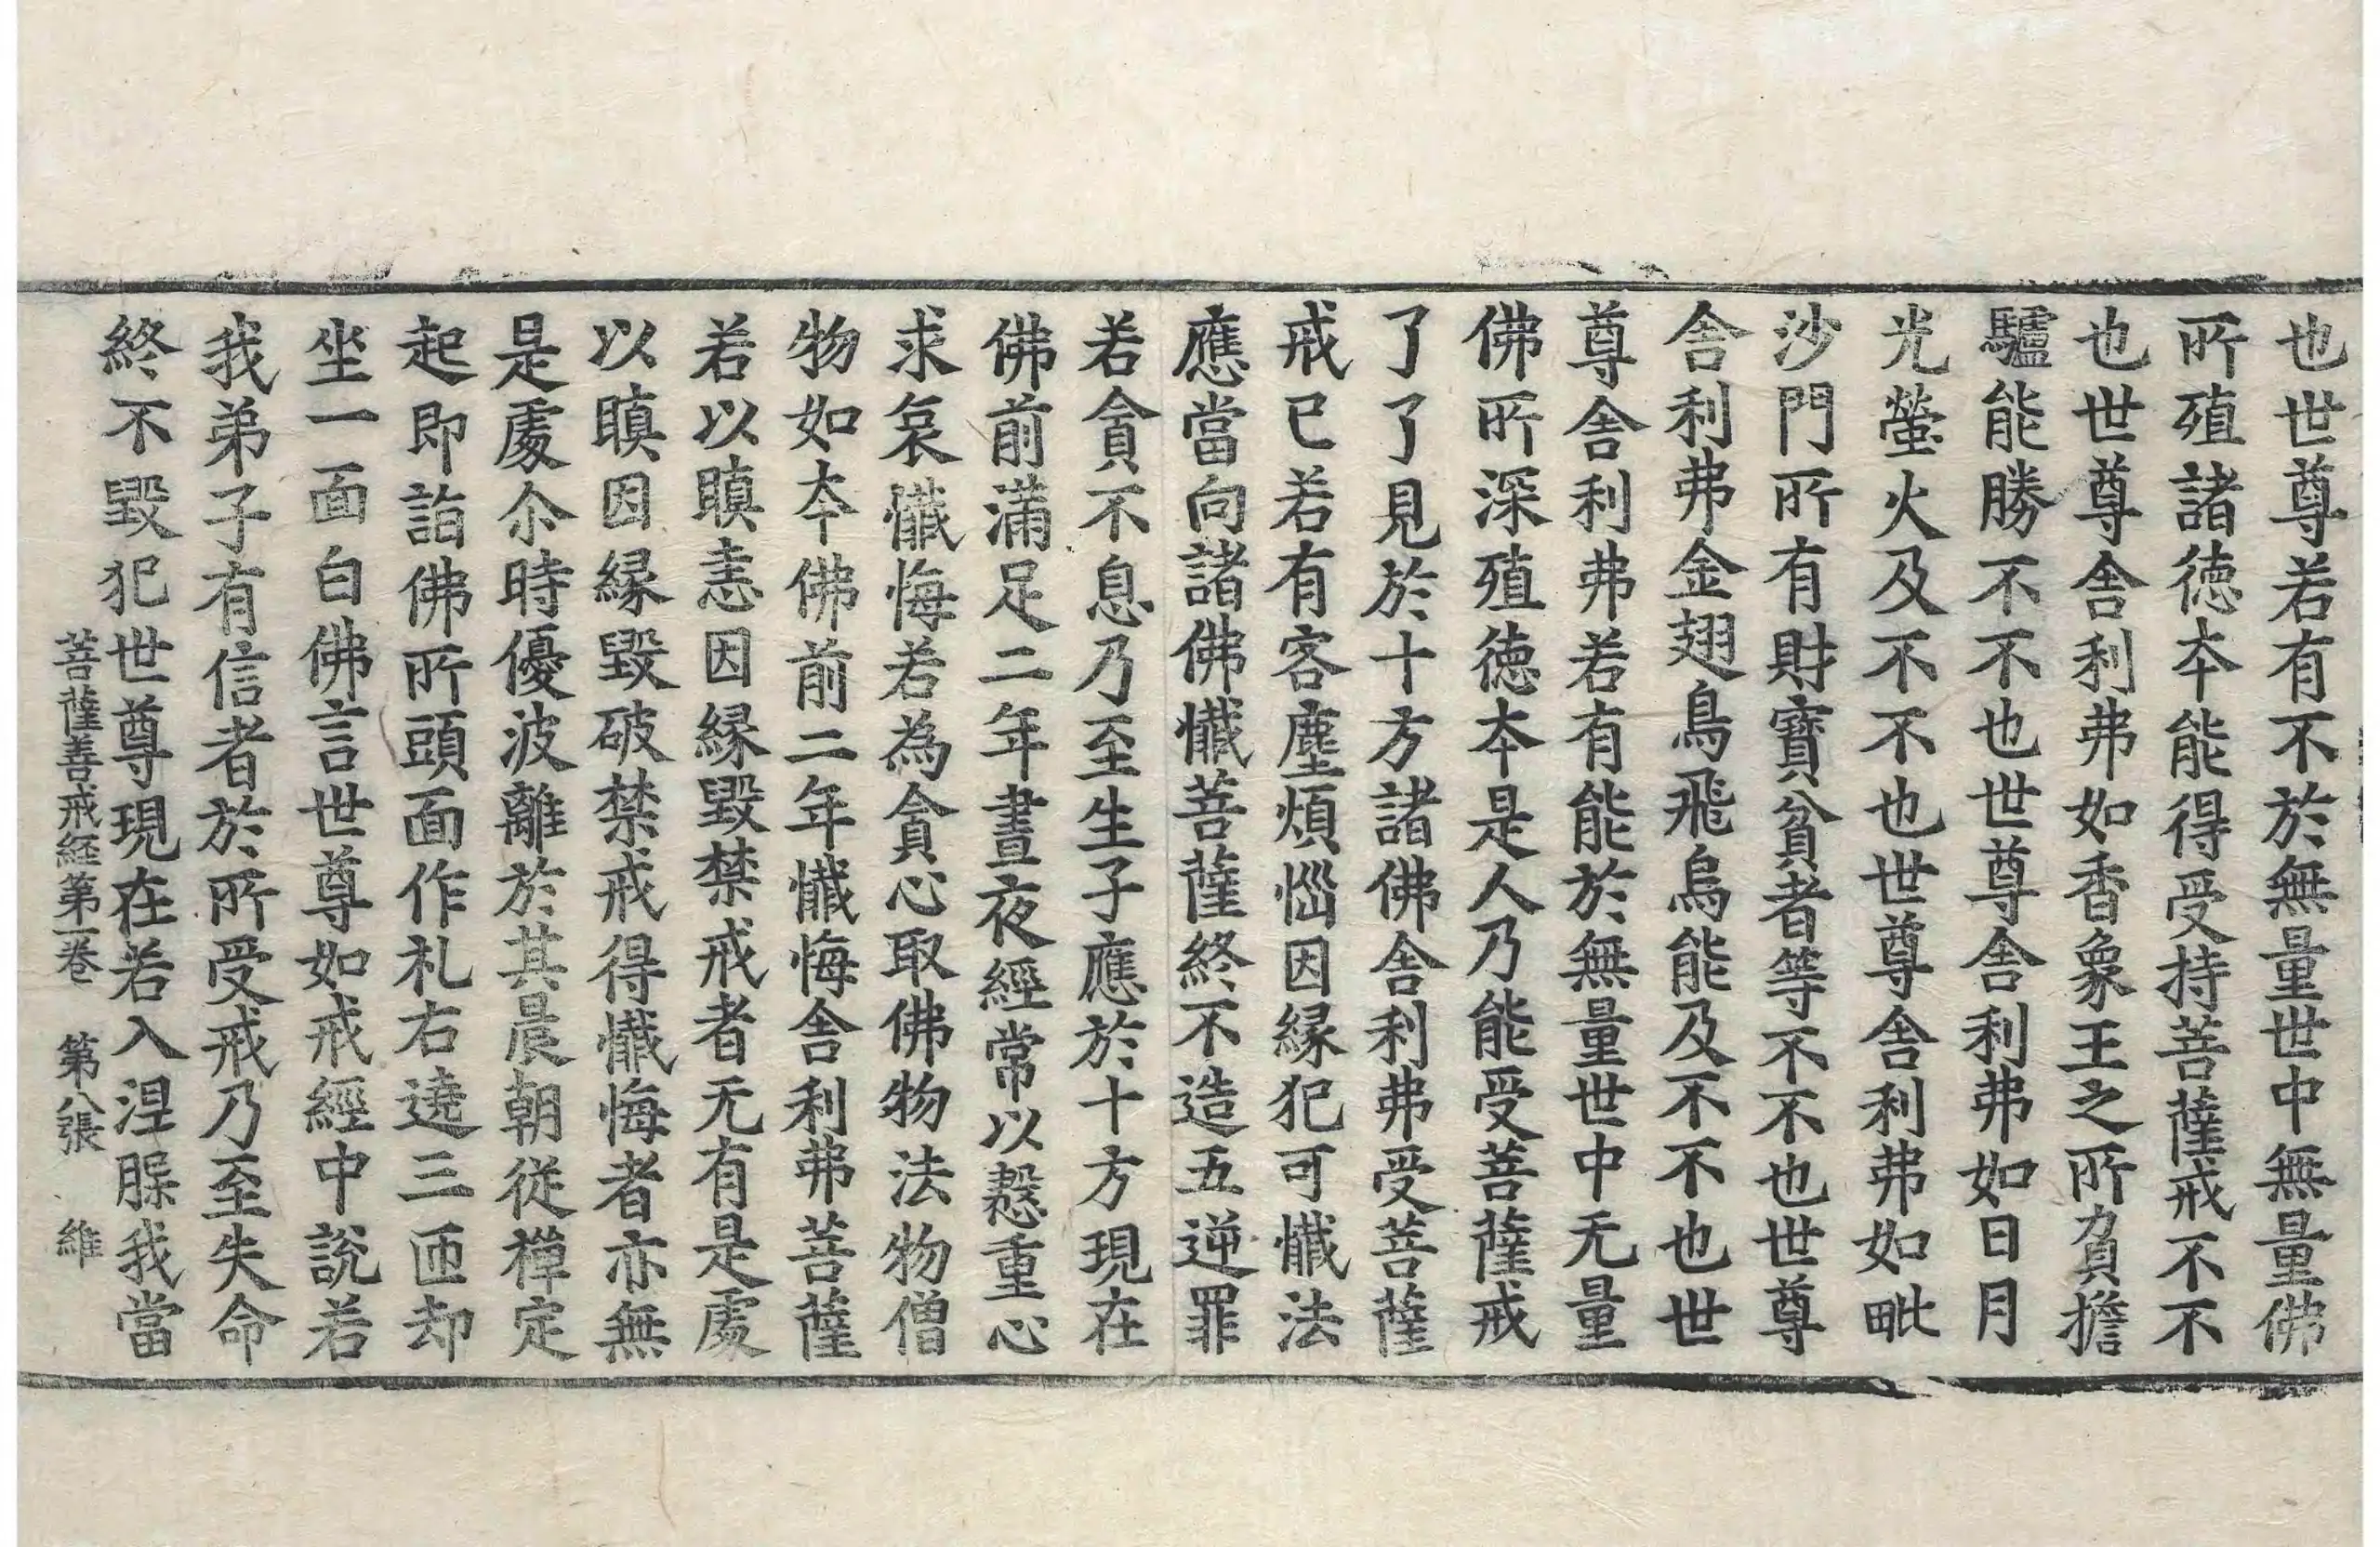 也世尊若有不於無量世中無量佛
所殖諸徳夲能得受持菩薩戒不不
也世尊舎利弗如香象王之所負擔
驢能勝不不也世尊舎利弗如日月
光螢火及不不也世尊舎利弗如毗
沙門所有財寶貧者等不不也世尊
舎利弗金翅鳥飛烏能及不不也世
尊舎利弗若有能於無量世中无量
佛所深殖徳夲是人乃能受菩薩戒
了了見於十方諸佛舎利弗受菩薩
戒已若有客塵煩惱因縁犯可懺法
應當向諸佛懺菩薩終不造五逆罪
若貪不息乃至生子應於十方現在
佛前滿足二年晝夜經常以慇重心
求哀懺悔若為貪心取佛物法物僧
物如夲佛前二年懺悔舎利弗菩薩
若以瞋恚因縁毀禁戒者无有是處
以瞋因縁毀破禁戒得懺悔者亦無
是處尒時優波離於其晨朝從禪定
起即詣佛所頭面作礼右遶三匝却
坐一面白佛言世尊如戒經中說若
我弟子有信者於所受戒乃至失命
終不毀犯世尊現在若入涅槃我當
菩薩善戒経第一巻 第八張 維